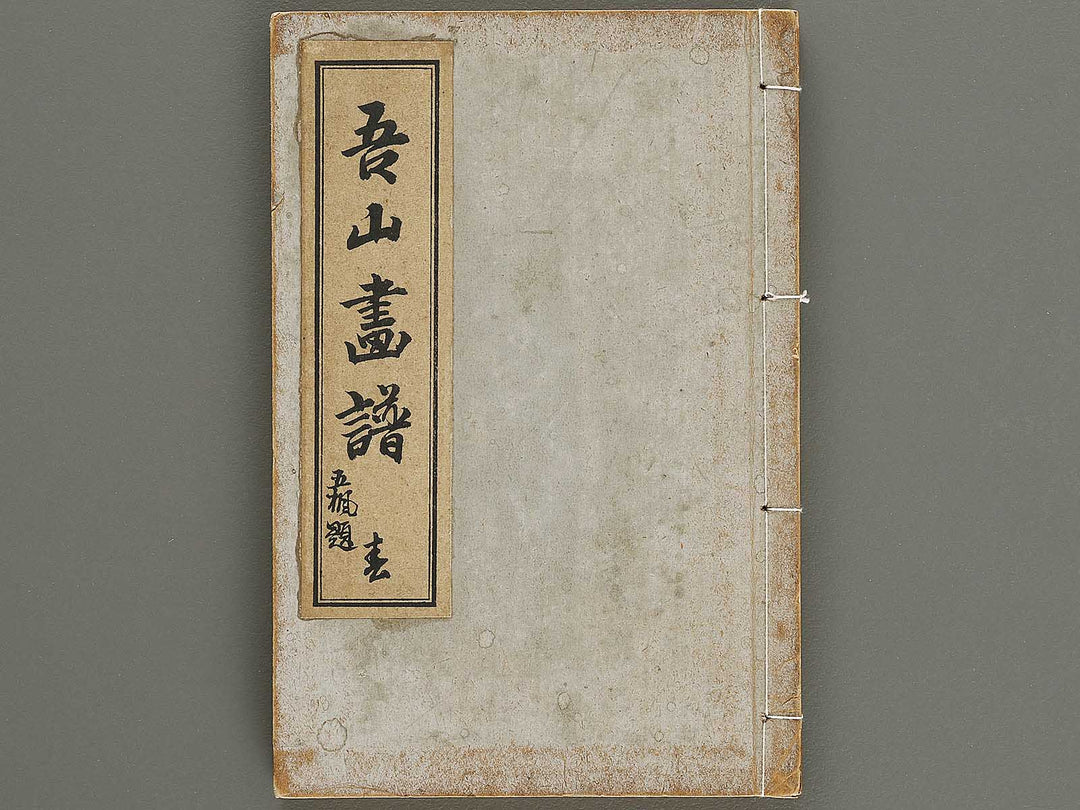 吾山畫譜
春
五楓題